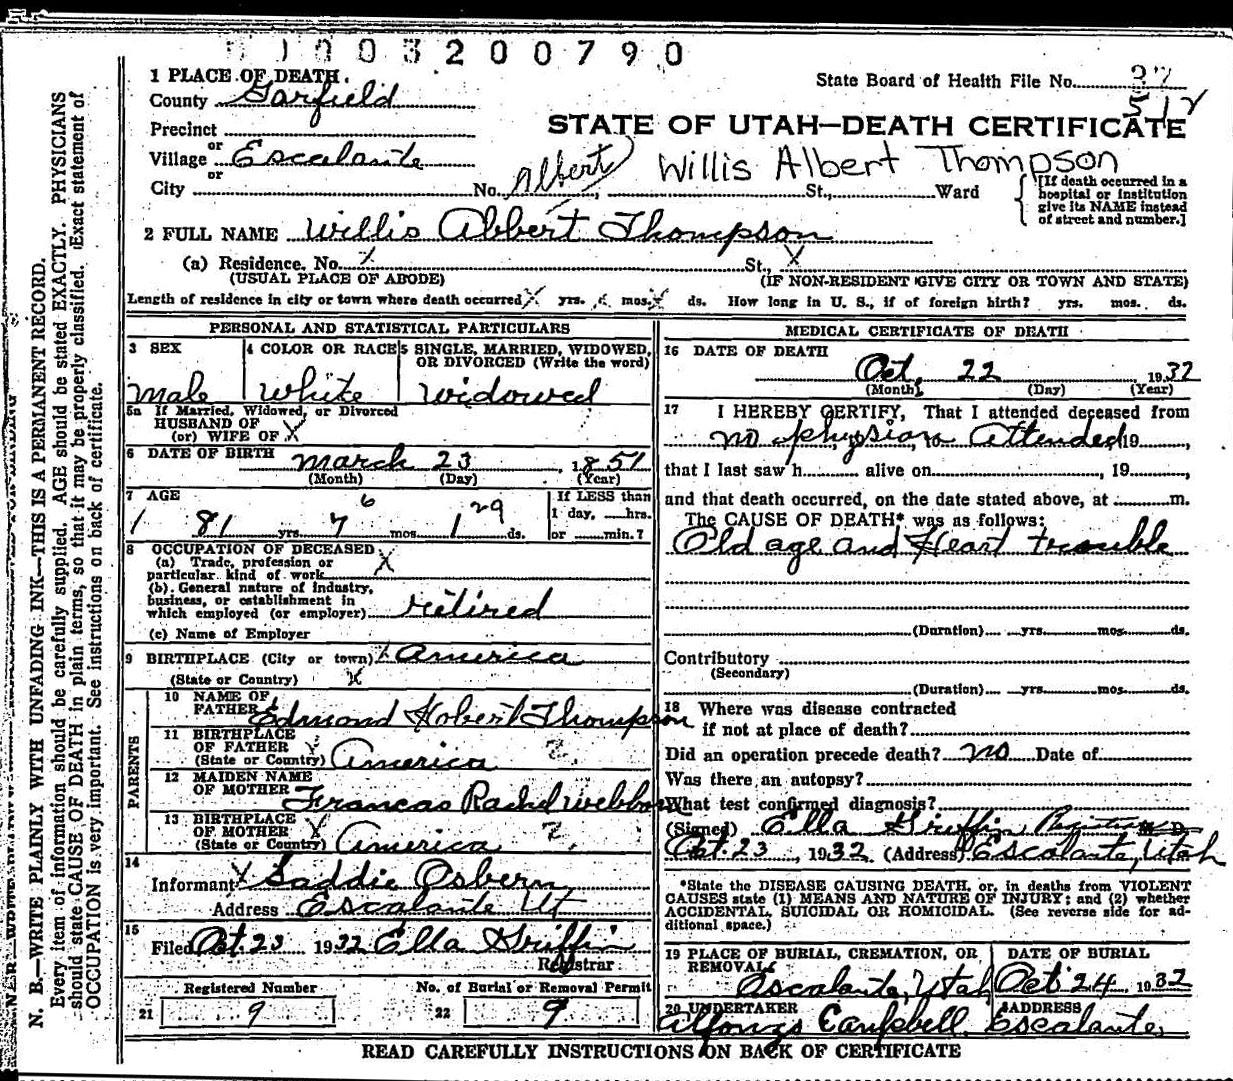 1003200790
1 PLACE OF DEATH.
County Garfield
State Board of Health File No. 37
512
Precinct
or
Village Escalante
or
City No. Albert St., Ward
STATE OF UTAH—DEATH CERTIFICATE
Willis Albert Thompson
[If death occurred in a
hospital or institution
give its NAME instead
of street and number.]
2 FULL NAME Willis Abbert Thompson
(a) Residence. No. X St., X
(USUAL PLACE OF ABODE) (IF NON-RESIDENT GIVE CITY OR TOWN AND STATE)
Length of residence in city or town where death occurred X yrs. mos. X ds. How long in U. S., if of foreign birth? yrs. mos. ds.
PERSONAL AND STATISTICAL PARTICULARS
3 SEX
male
4 COLOR OR RACE
White
5 SINGLE, MARRIED, WIDOWED,
OR DIVORCED (Write the word)
widowed
5a If Married, Widowed, or Divorced
HUSBAND OF
(or) WIFE OF X
6 DATE OF BIRTH March 23, 1851
(Month) (Day) (Year)
7 AGE
1 81 yrs. 7 6 mos. 1 29 ds.
If LESS than
1 day, hrs.
or min.?
8 OCCUPATION OF DECEASED X
(a) Trade, profession or
particular kind of work
(b) General nature of industry,
business, or establishment in
which employed (or employer) retired
(c) Name of Employer
9 BIRTHPLACE (City or town) America
(State or Country) X
PARENTS
10 NAME OF
FATHER Edmond Hobert Thompson
11 BIRTHPLACE
OF FATHER
(State or Country) America ?
12 MAIDEN NAME
OF MOTHER Francas Rachel
13 BIRTHPLACE
OF MOTHER X
(State or Country) America ?
14
Informant X Saddie Osbern
Address Escalante Ut
15
Filed Oct. 23 1932 Ella Griffin
Registrar
Registered Number
21 9
No. of Burial or Removal Permit
22 9
MEDICAL CERTIFICATE OF DEATH
16 DATE OF DEATH
Oct, 22 1932
(Month) (Day) (Year)
17 I HEREBY CERTIFY, That I attended deceased from
no physian to Attended, 19 ,
that I last saw h alive on , 19 ,
and that death occurred, on the date stated above, at m.
The CAUSE OF DEATH* was as follows:
Old age and Heart trouble
(Duration) yrs. mos. ds.
Contributory
(Secondary)
(Duration) yrs. mos. ds.
18 Where was disease contracted
if not at place of death?
Did an operation precede death? no Date of
Was there an autopsy?
What test confirmed diagnosis?
(Signed) Ella Griffin, Registrar M. D.
Oct. 23, 1932 (Address) Escalante, Utah
*State the DISEASE CAUSING DEATH, or, in deaths from VIOLENT
CAUSES state (1) MEANS AND NATURE OF INJURY; and (2) whether
ACCIDENTAL, SUICIDAL OR HOMICIDAL. (See reverse side for ad-
ditional space.)
19 PLACE OF BURIAL, CREMATION, OR
REMOVAL
Escalante, Utah
DATE OF BURIAL
Oct 24, 1932
20 UNDERTAKER
Alfonzo Campbell
ADDRESS
Escalante,
READ CAREFULLY INSTRUCTIONS ON BACK OF CERTIFICATE
N. B.—WRITE PLAINLY WITH UNFADING INK—THIS IS A PERMANENT RECORD.
Every item of information should be carefully supplied. AGE should be stated EXACTLY. PHYSICIANS
should state CAUSE OF DEATH in plain terms, so that it may be properly classified. Exact statement of
OCCUPATION is very important. See instructions on back of certificate.